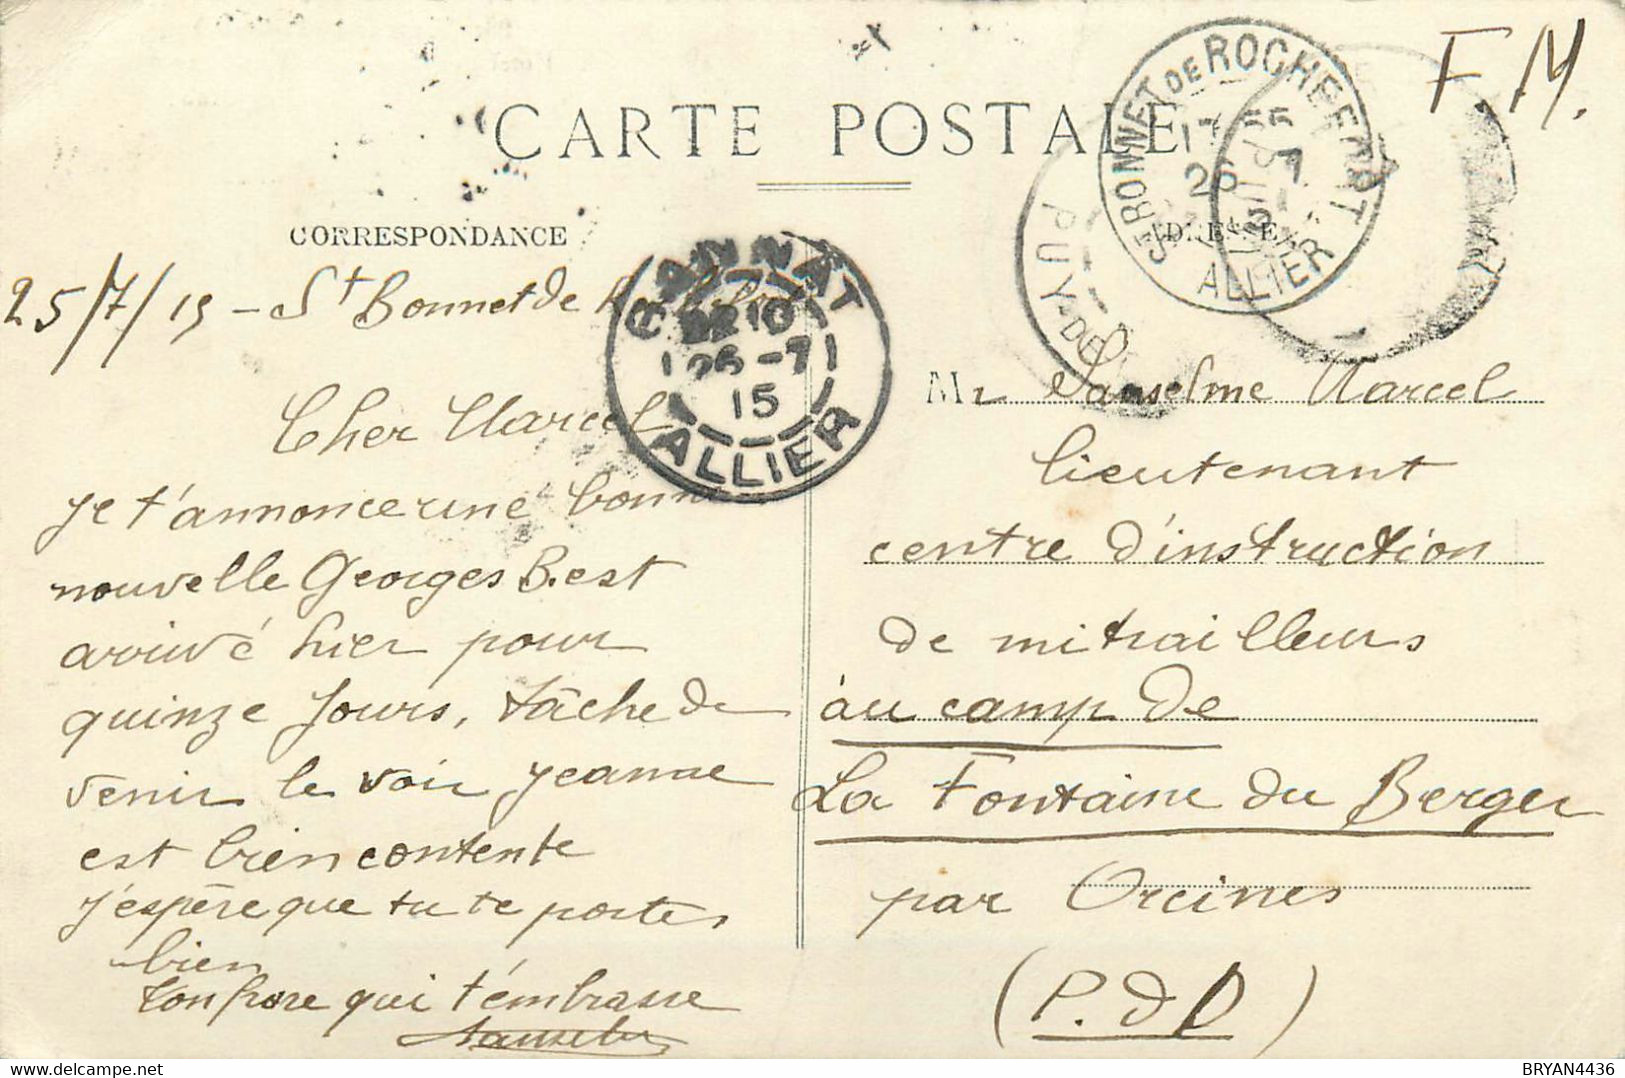 F.M.
CARTE POSTALE
St BONNET DE ROCHEFORT
17 55
26 7
15
ALLIER
PUY-DE
CORRESPONDANCE
ADRESSE
GANNAT
26-7
15
ALLIER
25/7/15 - St Bonnet de Rochefort
Cher Marcel
je t'annonce une bonne
nouvelle Georges B. est
arrivé hier pour
quinze jours, tâche de
venir le voir Jeanne
est bien contente
j'espère que tu te portes
bien
ton frère qui t'embrasse
Sanselme
Mr Sanselme Marcel
lieutenant
centre d'instruction
de mitrailleurs
au camp de
La Fontaine du Berger
par Orcines
(P. d D)
BRYAN4436